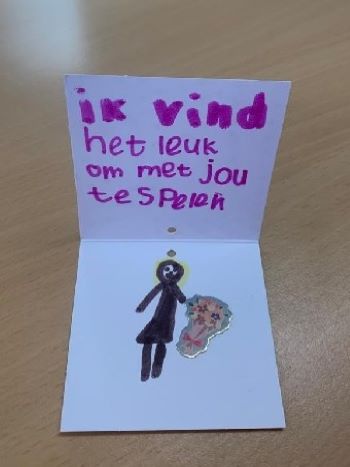 ik vind
het leuk
om met jou
te spelen